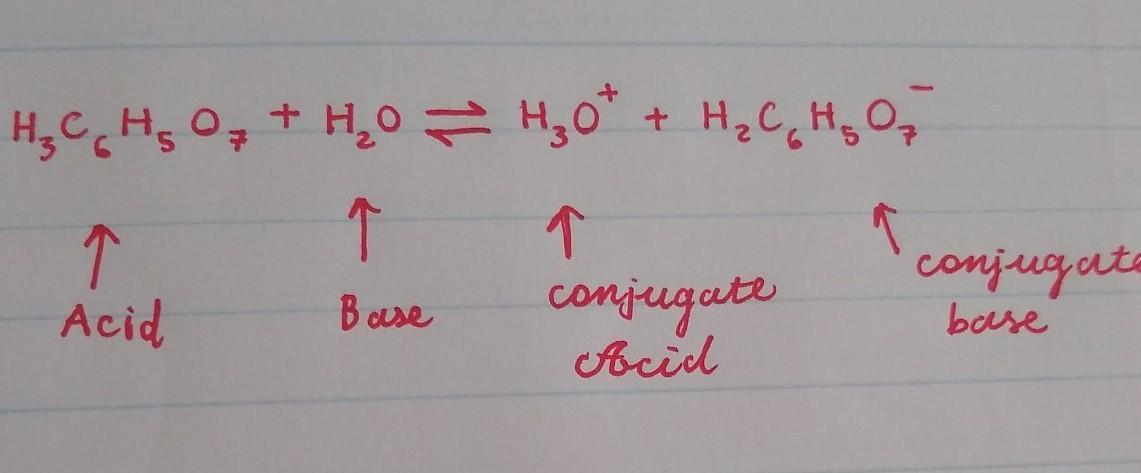 H₃C₆H₅O₇ + H₂O ⇌ H₃O⁺ + H₂C₆H₅O₇⁻
Acid
Base
conjugate
Acid
conjugate
base